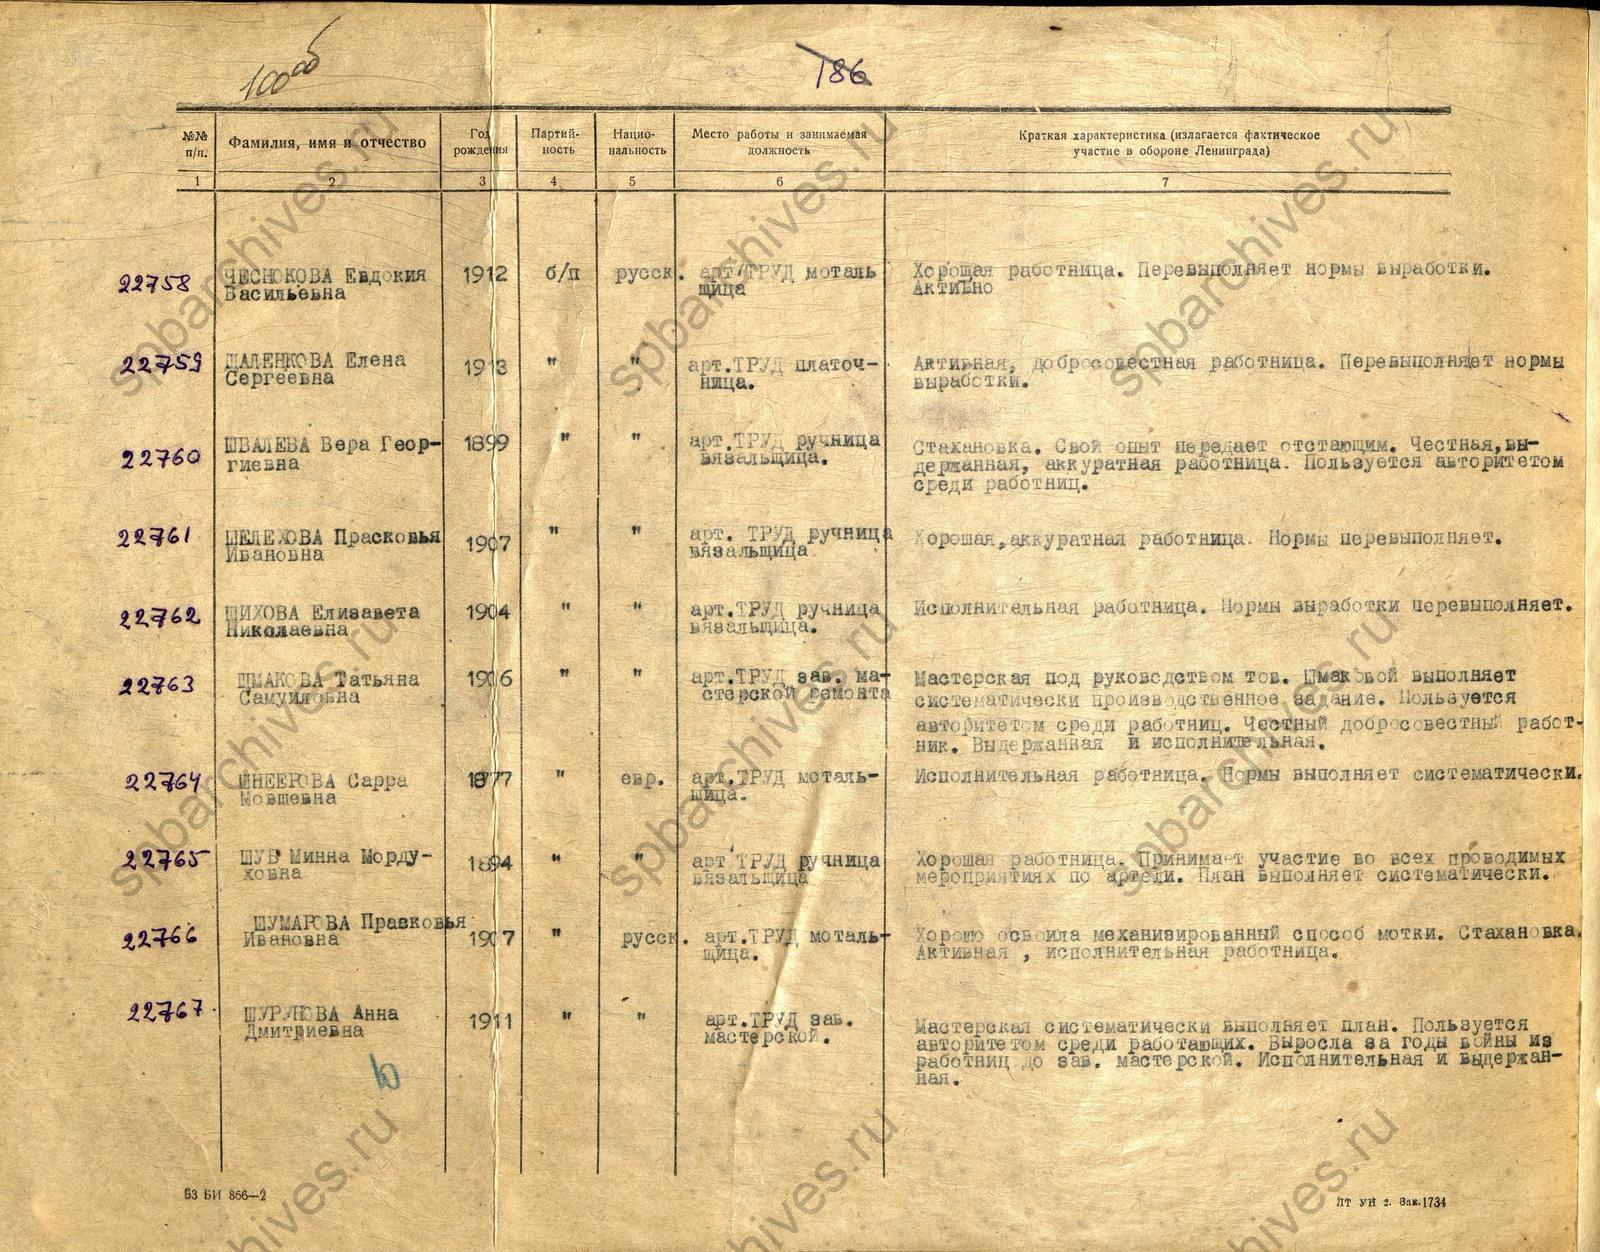 100об
186
№№ п/п. Фамилия, имя и отчество Год рождения Партий-ность Нацио-нальность Место работы и занимаемая должность Краткая характеристика (излагается фактическое участие в обороне Ленинграда)
1 2 3 4 5 6 7
22758 ЧЕСНОКОВА Евдокия 1912 б/п русск. арт ТРУД моталь Хорошая работница. Перевыполняет нормы выработки.
Васильевна щица Активно
22759 ШАЛЕНКОВА Елена 1913 " " арт.ТРУД платоч- Активная, добросовестная работница. Перевыполняет нормы
Сергеевна ница. выработки.
22760 ШВАЛЕВА Вера Геор- 1899 " " арт.ТРУД ручница Стахановка. Свой опыт передает отстающим. Честная,вы-
гиевна вязальщица. держанная, аккуратная работница. Пользуется авторитетом
среди работниц.
22761 ШЕЛЕХОВА Прасковья 1907 " " арт. ТРУД ручница Хорошая,аккуратная работница. Нормы перевыполняет.
Ивановна вязальщица
22762 ШИХОВА Елизавета 1904 " " арт.ТРУД ручница Исполнительная работница. Нормы выработки перевыполняет.
Николаевна вязальщица.
22763 ШМАКОВА Татьяна 1906 " " арт.ТРУД зав. ма- Мастерская под руководством тов. Шмаковой выполняет
Самуиловна стерской ремонта систематически производственное задание. Пользуется
авторитетом среди работниц. Честный добросовестный работ-
ник. Выдержанная и исполнительная.
22764 ШНЕЕРОВА Сарра 1877 " евр. арт.ТРУД моталь- Исполнительная работница. Нормы выполняет систематически.
Мовшевна щица.
22765 ШУБ Минна Морду- 1894 " " арт ТРУД ручница Хорошая работница. Принимает участие во всех проводимых
ховна вязальщица мероприятиях по артели. План выполняет систематически.
22766 ШУМАРОВА Правковья 1907 " русск. арт.ТРУД моталь- Хорошо освоила механизированный способ мотки. Стахановка.
Ивановна щица. Активная , исполнительная работница.
22767 ШУРУНОВА Анна 1911 " " арт.ТРУД зав. Мастерская систематически выполняет план. Пользуется
Дмитриевна мастерской. авторитетом среди работающих. Выросла за годы войны из
работниц до зав. мастерской. Исполнительная и выдержан-
ная.
10
БЗ БИ 866—2 ЛТ УИ г. Зак.1734
spbarchives.ru